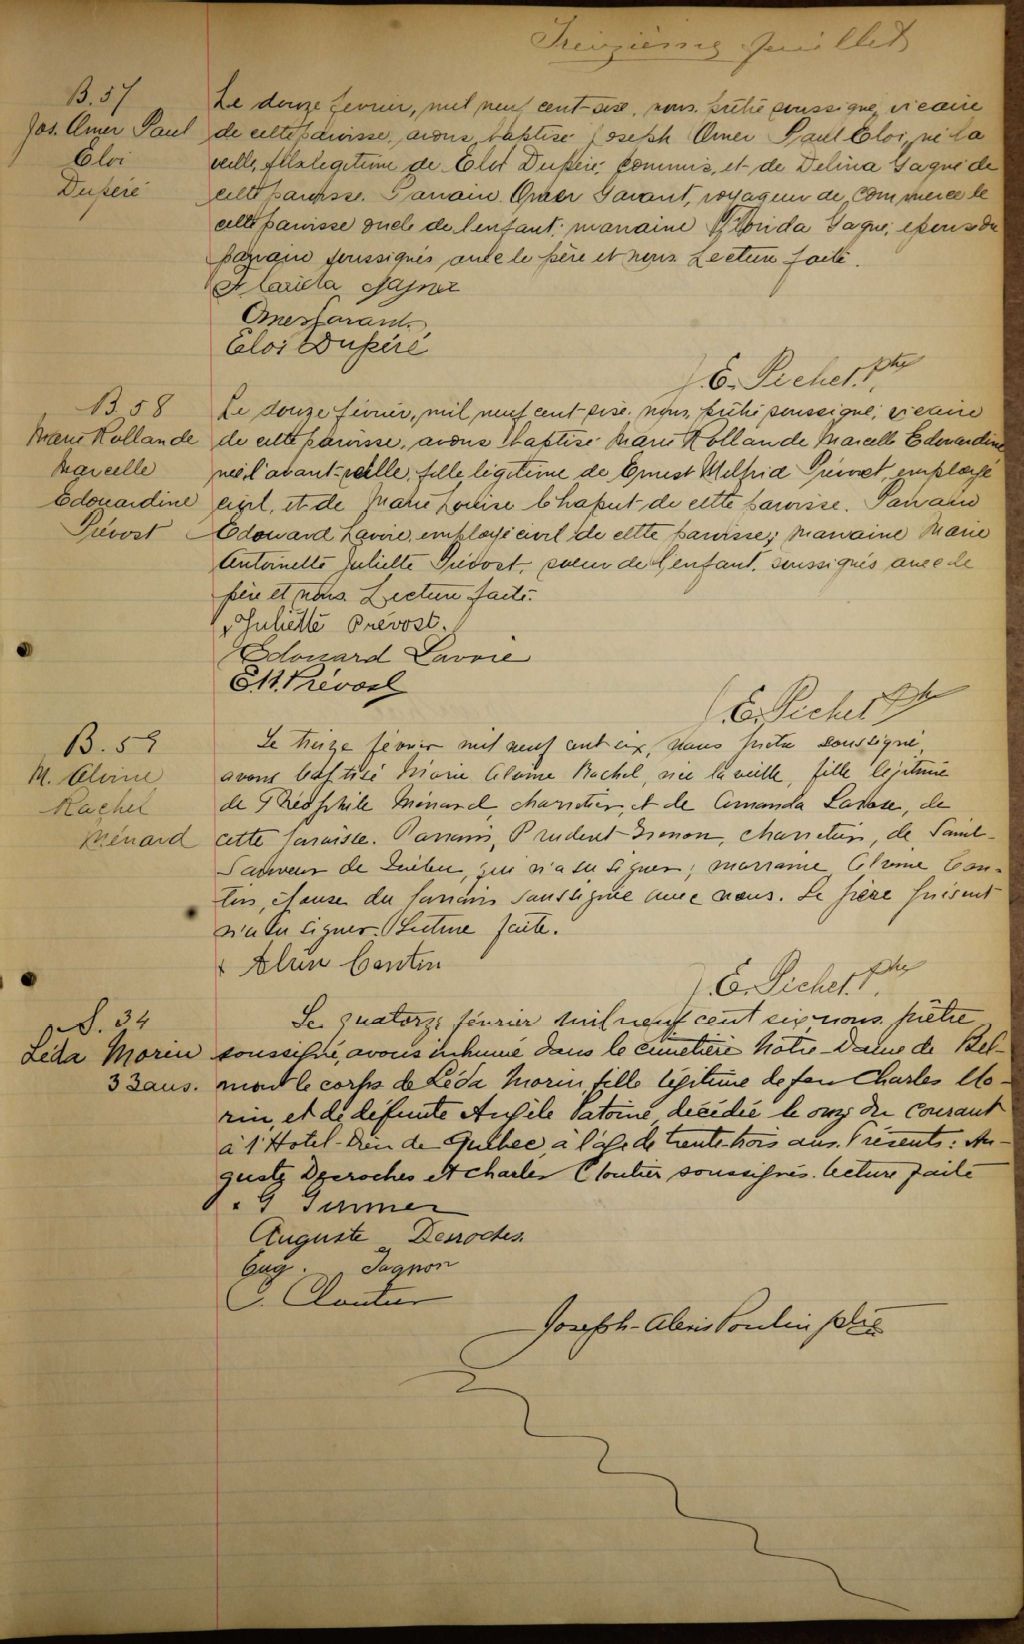 Treizième feuillet
B. 57
Jos. Omer Paul
Eloi
Dupéré
Le douze fevrier, mil neuf cent-six, nous, prêtre soussigné, vicaire
de cette paroisse, avons baptisé Joseph Omer Paul Eloi, né la
veille, fils légitime de Eloi Dupéré, commis, et de Delina Gagné de
cette paroisse. Parrain Omer Savant, voyageur de commerce de
cette paroisse oncle de l'enfant; marraine Florida Gagné, epouse du
parrain soussignés avec le père et nous. Lecture faite.
Florida Gagné
Omer Savant
Eloi Dupéré
J. E. Pichet. Ptre
B 58
Marie Rollande
Marcelle
Edouardine
Prévost
Le douze février, mil neuf cent-six, nous, prêtre soussigné, vicaire
de cette paroisse, avons baptisé Marie Rollande Marcelle Edouardine
née l'avant-veille, fille légitime de Ernest Prévost, employé
civil, et de Marie Louise Chaput de cette paroisse. Parrain
Edouard Lavoie, employé civil de cette paroisse; marraine Marie
Antoinette Juliette Prévost, soeur de l'enfant, soussignés avec le
père et nous. Lecture faite.
x Juliette Prévost.
Edouard Lavoie
E. Prévost
J. E. Pichet Ptr
B. 59
M. Alvine
Rachel
Ménard
Le treize février mil neuf cent six, nous prêtre soussigné,
avons baptisé Marie Alvine Rachel, née la veille, fille légitime
de Théophile Ménard, charretier, et de Amanda Larose, de
cette paroisse. Parrain, Prudent Grenon, charretier, de Saint-
Sauveur de Québec, qui n'a su signer; marraine, Alvine Can-
tin, épouse du parrain soussignée avec nous. Le père présent
n'a su signer. Lecture faite.
x Alvin Cantin
J. E. Pichet. Ptre
S. 34
Léda Morin
33 ans.
Le quatorze février mil neuf cent six, nous, prêtre
soussigné, avons inhumé dans le cimetière Notre-Dame de Bel-
mont le corps de Léda Morin, fille légitime de feu Charles Mo-
rin, et de défunte Angèle Patoine, décédée le onze du courant
à l'Hotel-Dieu de Québec, à l'âge de trente-trois ans. Présents: Au-
guste Desroches et Charles Cloutier soussignés. Lecture faite
Auguste Desroches.
Eug. Gagnon
C. Cloutier
Joseph-Alexis Poulin ptre